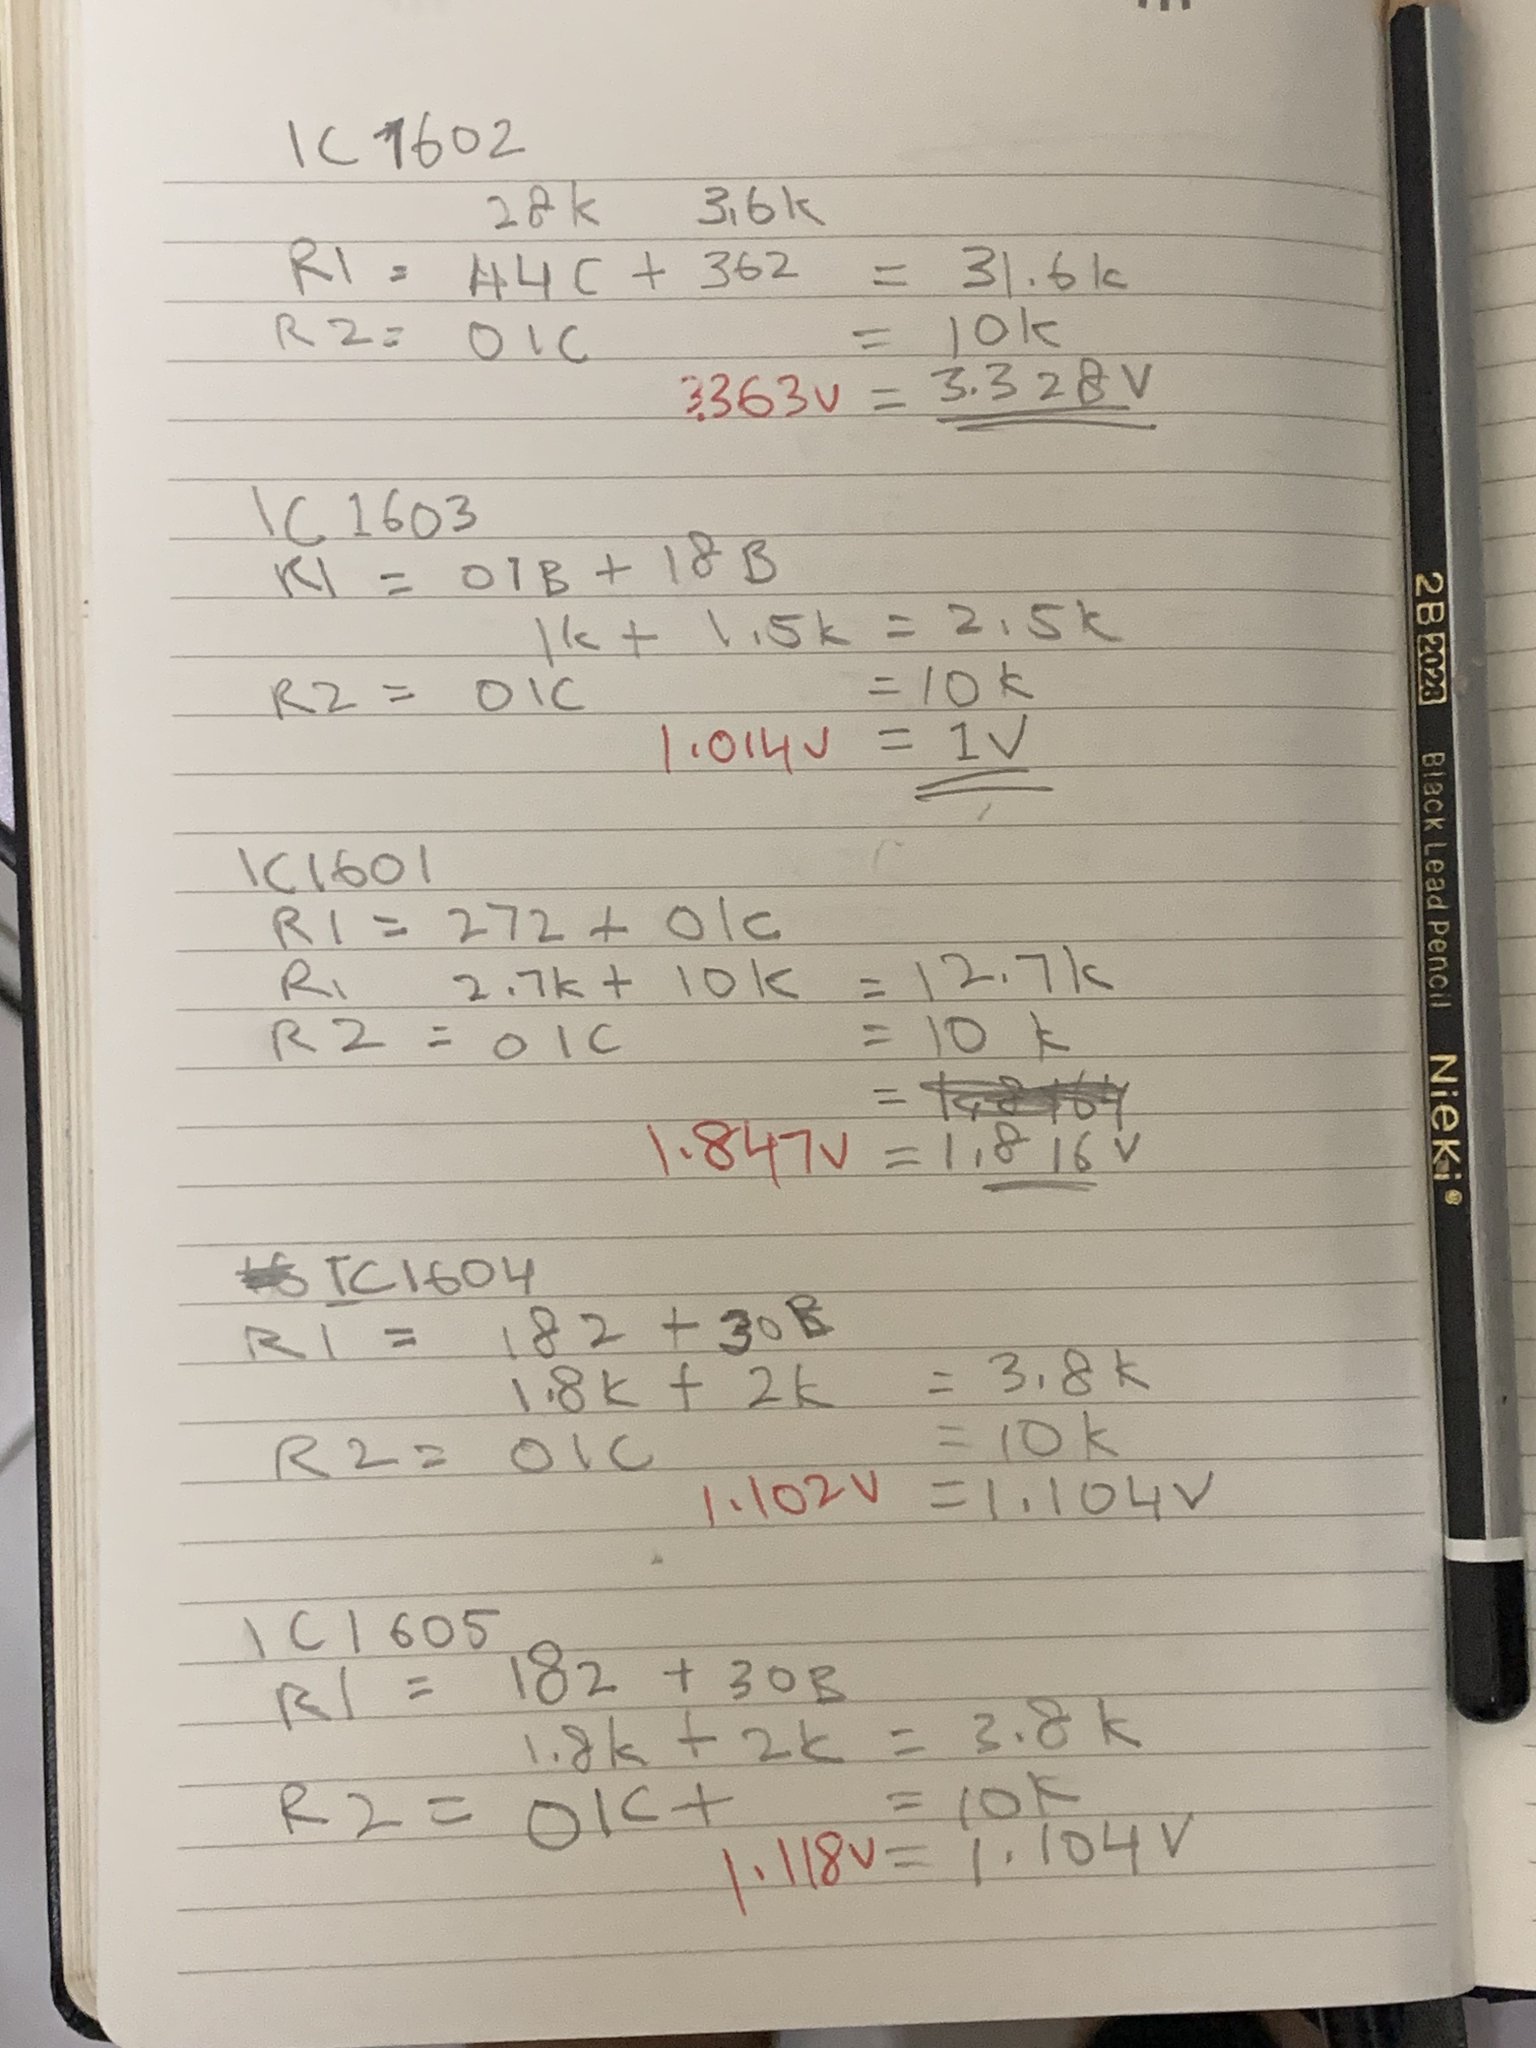 IC 1602
28k 3.6k
R1 = 44C + 362 = 31.6k
R2 = 01C = 10k
3.363V = 3.328V
IC 1603
R1 = 01B + 18B
1k + 1.5k = 2.5k
R2 = 01C = 10k
1.014V = 1V
IC1601
R1 = 272 + 01C
R1 2.7k + 10k = 12.7k
R2 = 01C = 10k
=
1.847V = 1.816V
IC1604
R1 = 182 + 30B
1.8k + 2k = 3.8k
R2 = 01C = 10k
1.102V = 1.104V
IC1605
R1 = 182 + 30B
1.8k + 2k = 3.8k
R2 = 01C + = 10k
1.118V = 1.104V
2B 2028 Black Lead Pencil Nieki®